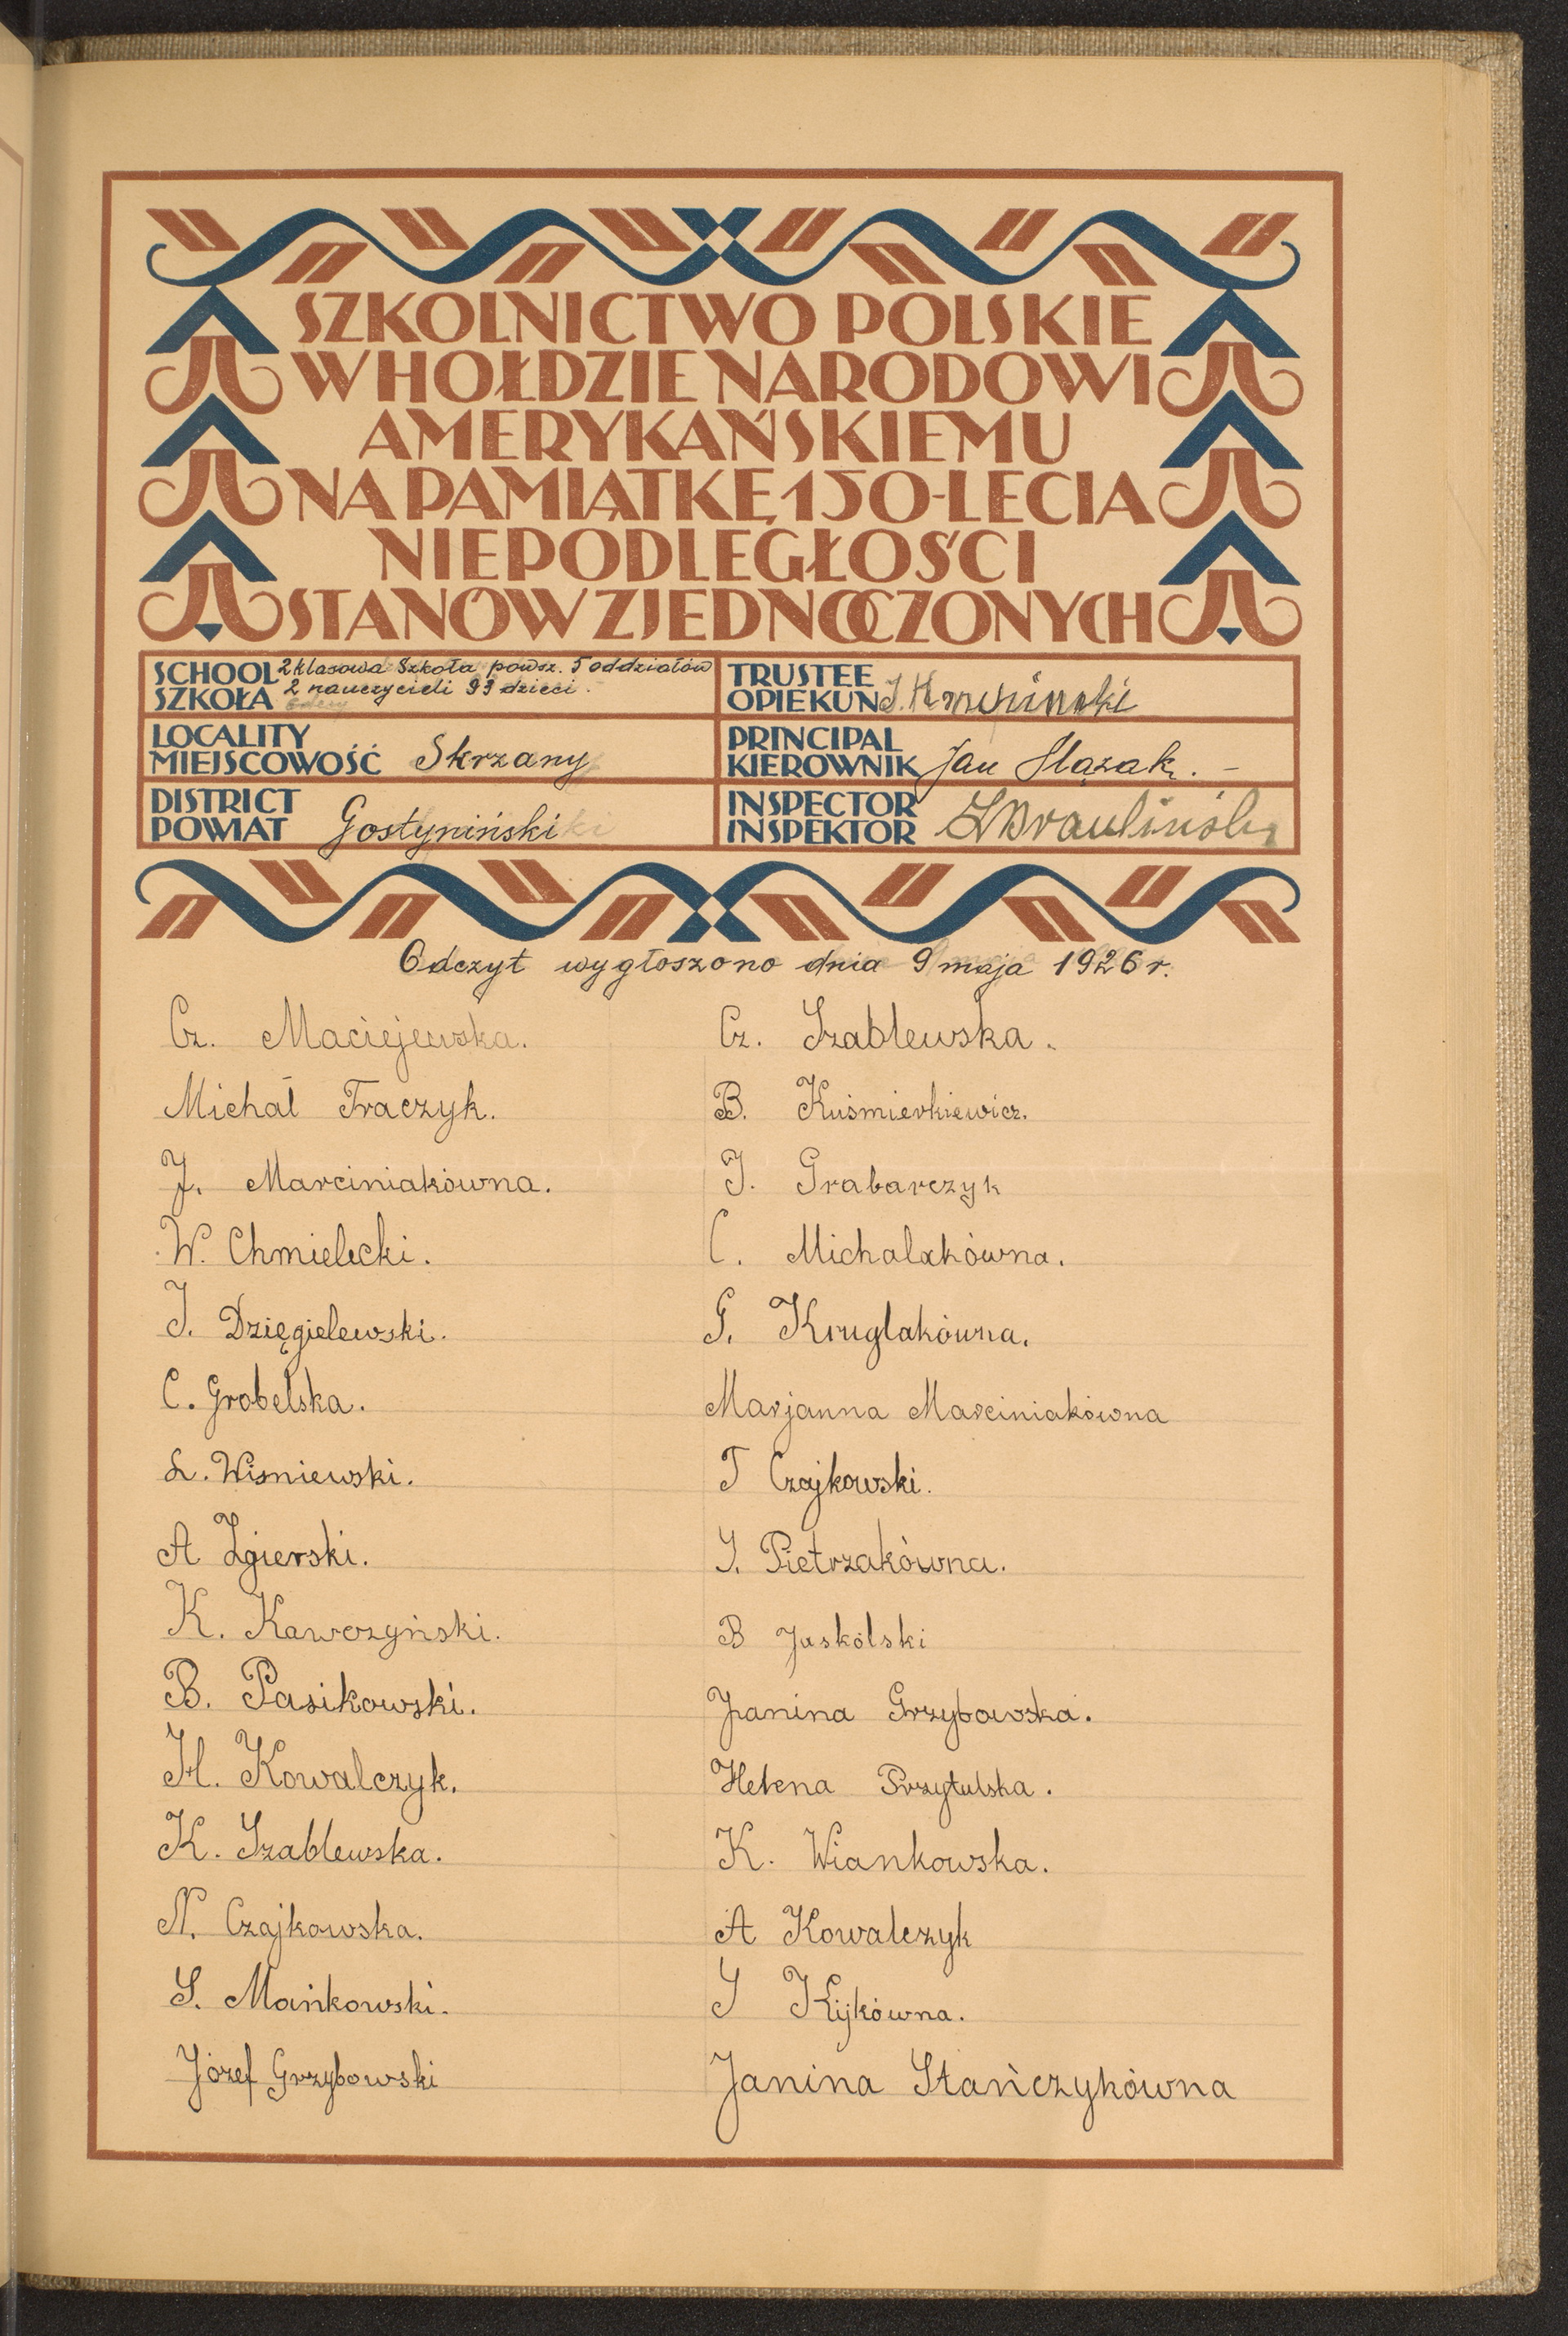 SZKOLNICTWO POLSKIE
W HOŁDZIE NARODOWI
AMERYKAŃSKIEMU
NA PAMIĄTKĘ 150-LECIA
NIEPODLEGŁOŚCI
STANÓW ZJEDNOCZONYCH
SCHOOL 2 klasowa Szkoła powsz. 5 oddziałów
SZKOŁA 2 nauczycieli 93 dzieci.
TRUSTEE
OPIEKUN
LOCALITY
MIEJSCOWOŚĆ Skrzany
PRINCIPAL
KIEROWNIK Jan Ślązak. -
DISTRICT
POWIAT Gostyniński
INSPECTOR
INSPEKTOR
Odczyt wygłoszono dnia 9 maja 1926 r.
Cz. Maciejewska.
Michał Fraczyk.
J. Marciniakówna.
W. Chmielecki.
J. Dzięgielewski.
C. Grobelska.
L. Wisniewski.
A Zgierski.
K. Kawczyński.
B. Pasikowski.
H. Kowalczyk.
K. Szablewska.
N. Czajkowska.
S. Mańkowski.
Józef Grzybowski
Cz. Szablewska.
B. Kuśmierkiewicz.
J. Grabarczyk
C. Michalakówna.
G. Kruglakówna.
Marjanna Marciniakówna
T Czajkowski.
J. Pietrzakówna.
B Jaskólski
Janina Grzybowska.
Helena Przytulska.
K. Wiankowska.
A Kowalczyk
S Kijkówna.
Janina Stańczykówna